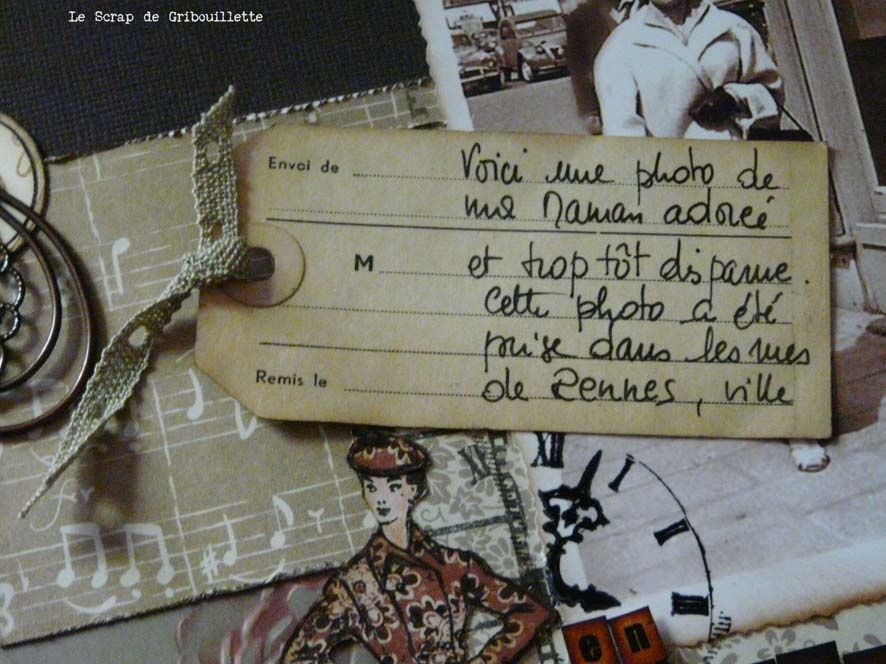 Le Scrap de Gribouillette
Envoi de
Voici une photo de
ma Maman adorée
M
et trop tôt disparue.
Cette photo a été
prise dans les rues
Remis le
de Rennes, ville
XII
I
II
III
en